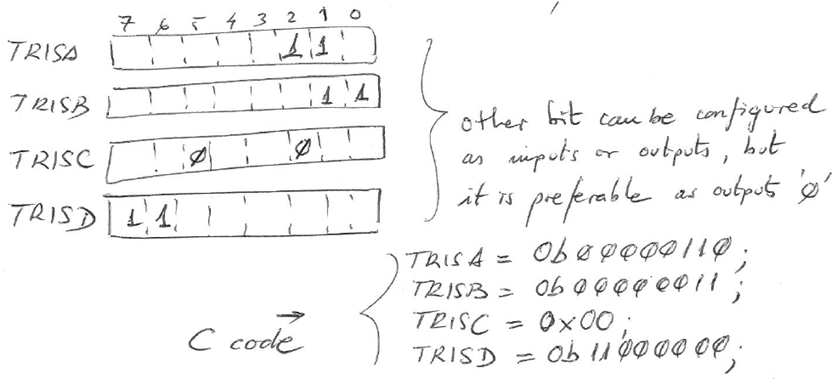 7 6 5 4 3 2 1 0
TRISA 1 1
TRISB 1 1
TRISC Ø Ø
TRISD 1 1
other bit can be configured
as inputs or outputs, but
it is preferable as outputs 'Ø'
C code
TRISA = 0b ØØØØØ11Ø;
TRISB = 0b ØØØØØØ11;
TRISC = 0x00;
TRISD = 0b 11ØØØØØØ;